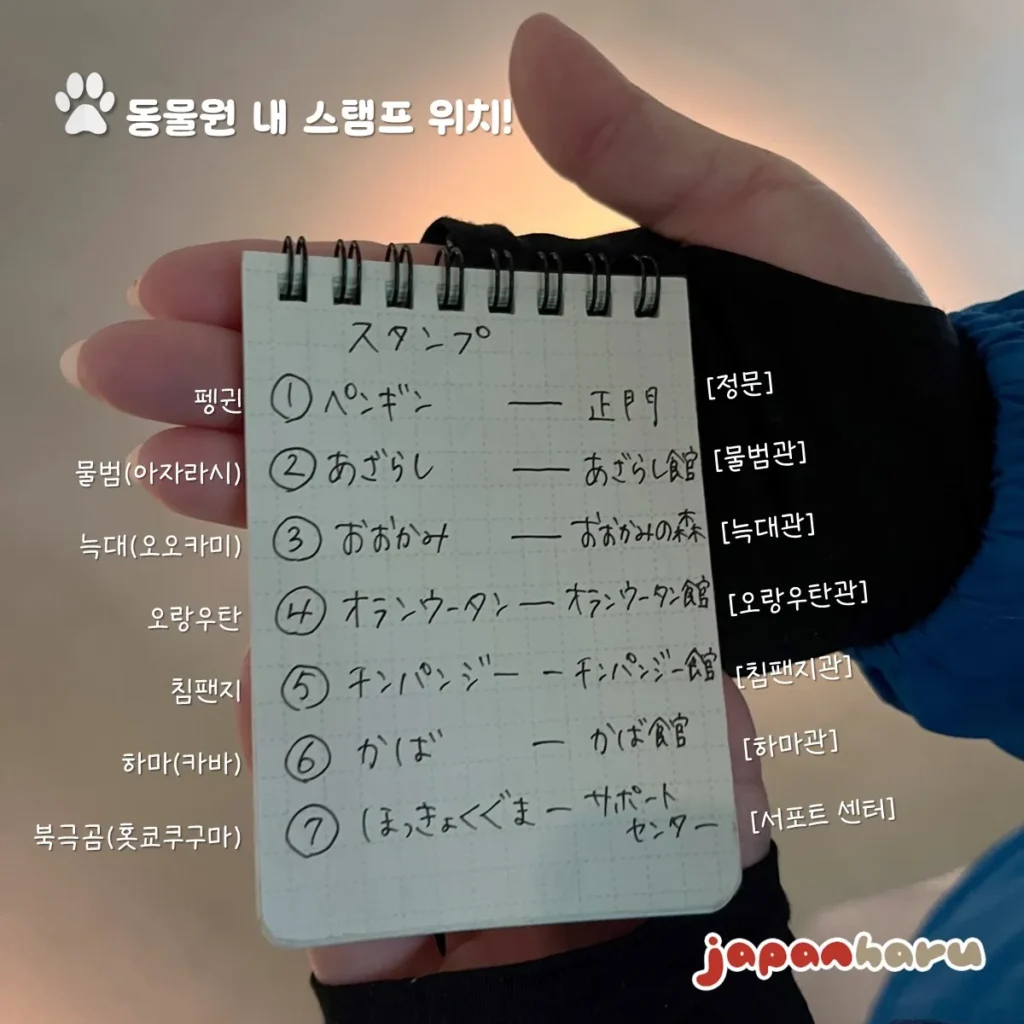 동물원 내 스탬프 위치!
スタンプ
펭귄 ① ペンギン — 正門 [정문]
물범(아자라시) ② あざらし — あざらし館 [물범관]
늑대(오오카미) ③ おおかみ — おおかみの森 [늑대관]
오랑우탄 ④ オランウータン — オランウータン館 [오랑우탄관]
침팬지 ⑤ チンパンジー — チンパンジー館 [침팬지관]
하마(카바) ⑥ かば — かば館 [하마관]
북극곰(홋쿄쿠구마) ⑦ ほっきょくぐま — サポート
センター [서포트 센터]
japanharu